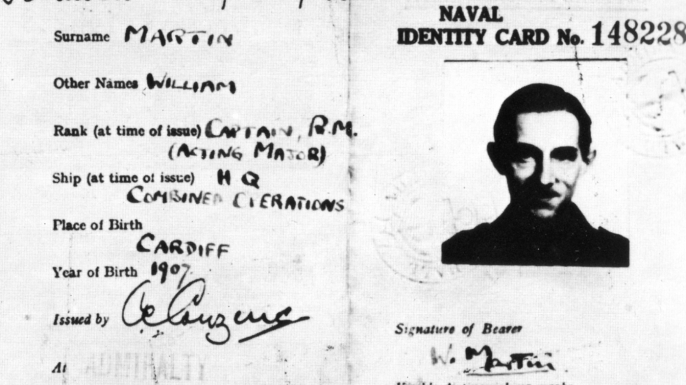 Surname MARTIN
Other Names WILLIAM
Rank (at time of issue) CAPTAIN, R.M.
(ACTING MAJOR)
Ship (at time of issue) H Q
COMBINED OPERATIONS
Place of Birth
CARDIFF
Year of Birth 1907
Issued by
At
ADMIRALTY
NAVAL
IDENTITY CARD No. 148228
Signature of Bearer
W. Martin